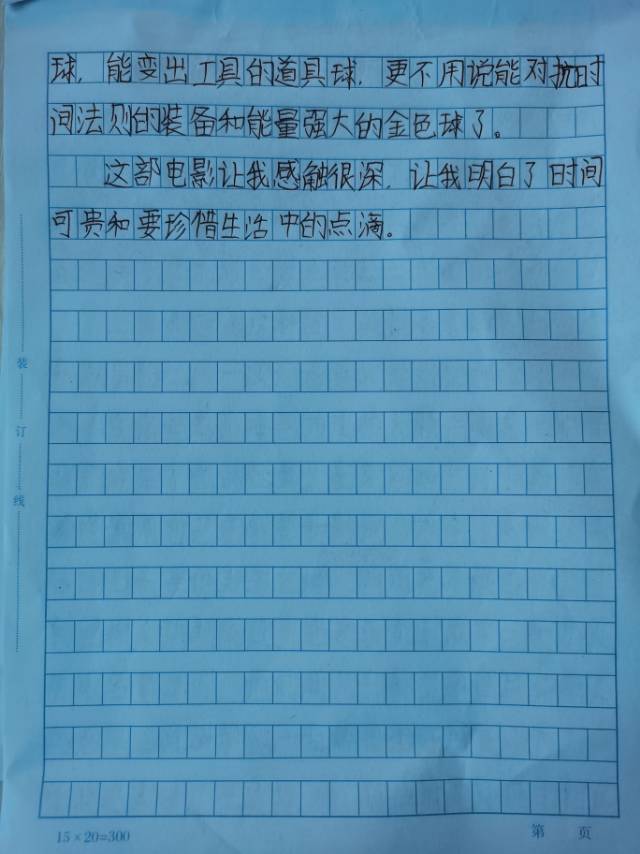 球，能变出工具的道具球，更不用说能对抗时
间法则的装备和能量强大的金色球了。
这部电影让我感触很深，让我明白了时间
可贵和要珍惜生活中的点滴。
装
订
线
15×20=300
第 页